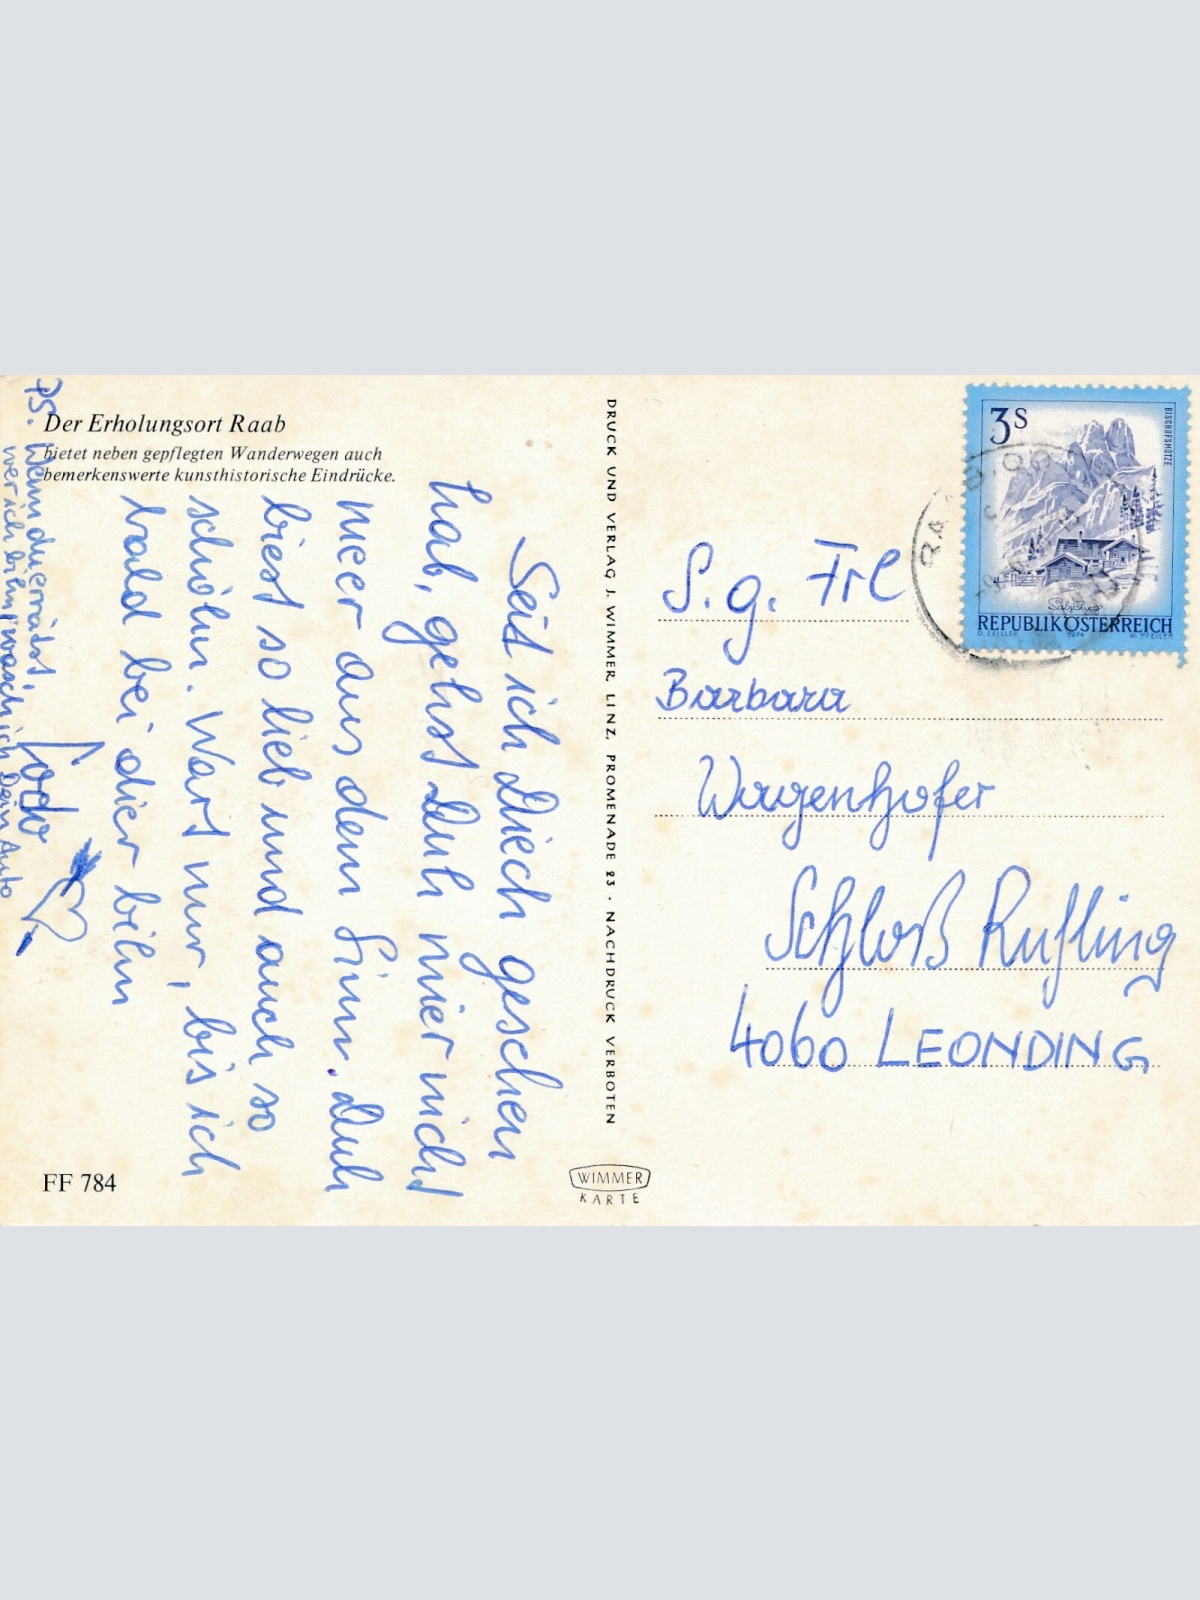 Der Erholungsort Raab
bietet neben gepflegten Wanderwegen auch
bemerkenswerte kunsthistorische Eindrücke.
Seit ich Diech geschen
hab, gehst Duh mier nicht
meer aus dem Sinn. Duh
biest so lieb und auch so
schöhn. Wart nur, bis ich
bald bei dier bihn
PS. Wenn du errätst,
wer ich bihn, wasch ich Dein Auto
FF 784
DRUCK UND VERLAG J. WIMMER, LINZ, PROMENADE 23 · NACHDRUCK VERBOTEN
WIMMER
KARTE
3S
BISCHOFSMÜTZE
Salzburg
REPUBLIK ÖSTERREICH
O. ZEILLER 1974 W. PFEILER
S. g. Frl
Barbara
Wagenhofer
Schloß Rufling
4060 LEONDING